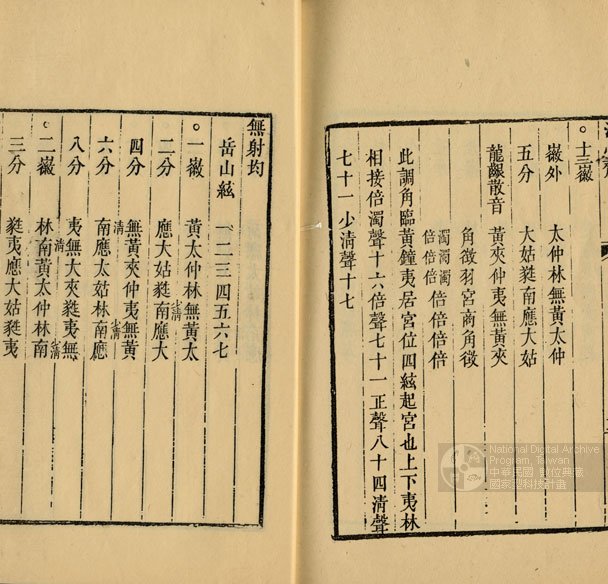 。十三徽
徽外 太仲林無黃太仲
五分 大姑蕤南應大姑
龍齦散音 黃夾仲夷無黃夾
角徵羽宮商角徵
濁濁濁倍倍倍倍
倍倍倍
此調角臨黃鐘夷居宮位四絃起宮也上下夷林
相接倍濁聲十六倍聲七十一正聲八十四清聲
七十一少清聲十七
無射均
岳山絃 一二三四五六七
。一徽 黃太仲林無黃太
少清
二分 應大姑蕤南應大
四分 無黃夾仲夷無黃
清 少清
六分 南應太姑林南應
八分 夷無大夾蕤夷無
清 少清
。二徽 林南黃太仲林南
三分 蕤夷應大姑蕤夷
National Digital Archive
Program, Taiwan
中華民國 數位典藏
國家型科技計畫